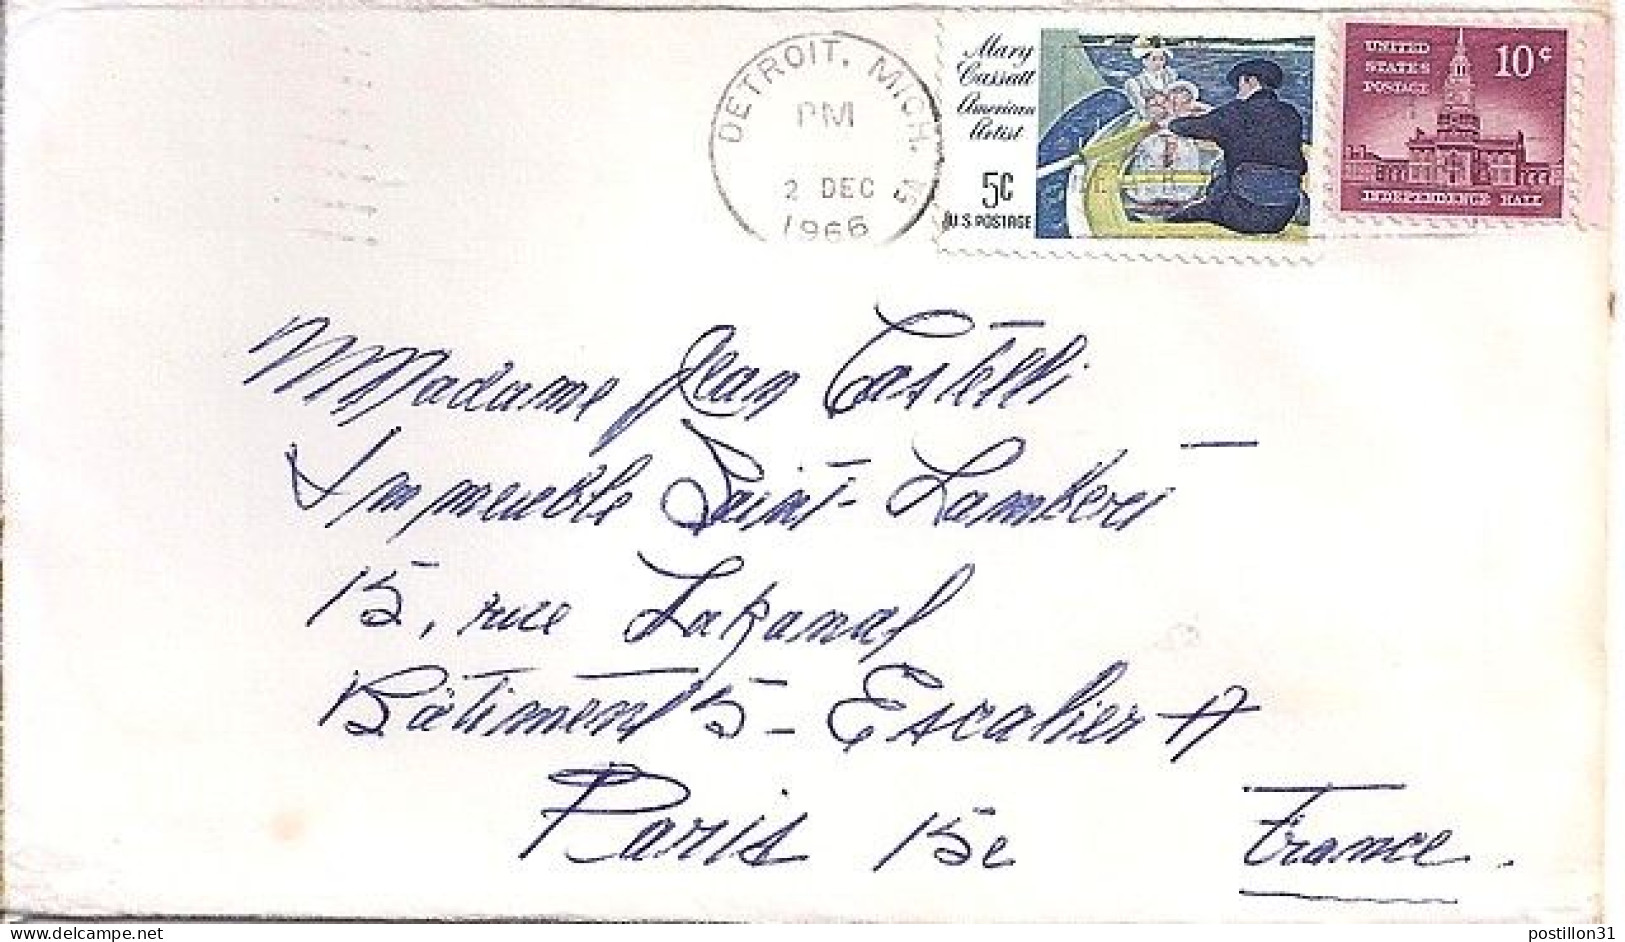 DETROIT, MICH.
PM
2 DEC
1966
Mary
Cassatt
American
Artist
5c
U.S. POSTAGE
UNITED
STATES
POSTAGE
10¢
INDEPENDENCE HALL
Madame Jean Castelli
Immeuble Saint-Lambert
15, rue Lakanal
Bâtiment 5 - Escalier A
Paris 15e France.
www.delcampe.net
postillon31